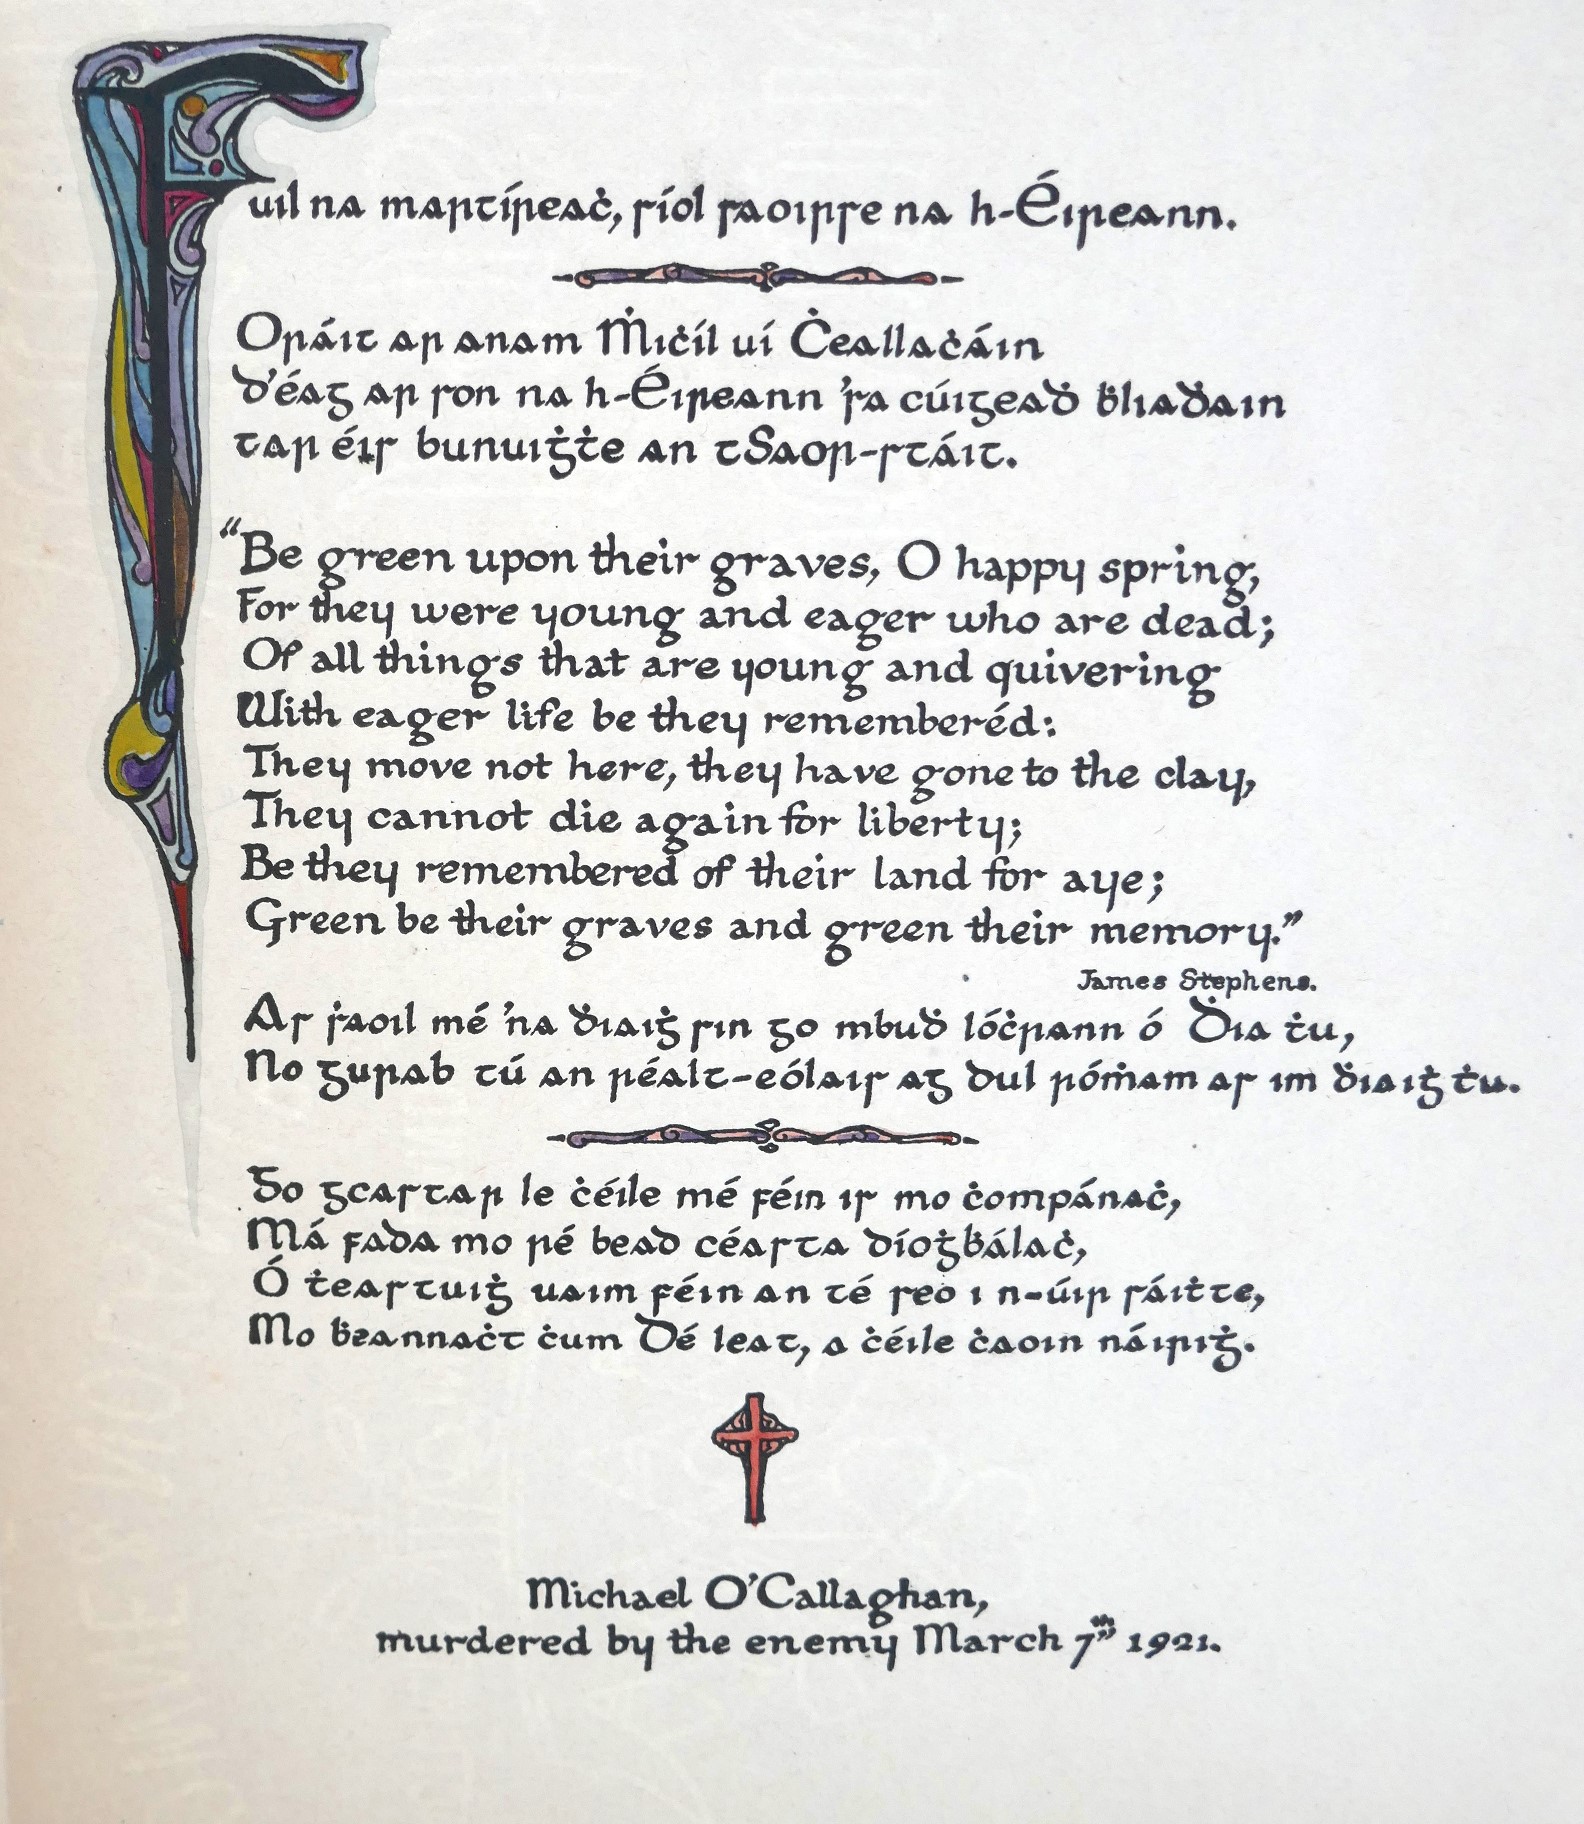 Fuil na martíreaċ, síol saoirse na h-Éireann.
Oráit ar anam Ṁiċíl uí Ċeallaċáin
d'éag ar son na h-Éireann 'sa cúigeaḋ ḃliaḋain
tar éis bunuiġṫe an tSaor-stáit.
"Be green upon their graves, O happy spring,
For they were young and eager who are dead;
Of all things that are young and quivering
With eager life be they rememberéd:
They move not here, they have gone to the clay,
They cannot die again for liberty;
Be they remembered of their land for aye;
Green be their graves and green their memory."
James Stephens.
As ṡaoil mé 'na ḋiaiġ sin go mbuḋ lóċrann ó Ḋia ṫu,
No gurab tú an réalt-eólais ag dul róṁam as im ḋiaiġ ṫu.
Go gcastar le ċéile mé féin is mo ċompánaċ,
Má fada mo ré bead céasta díoġḃálaċ,
Ó ṫeastuiġ uaim féin an té seo i n-úir sáiṫte,
Mo ḃeannaċt ċum Dé leat, a ċéile ċaoin náiriġ.
Michael O'Callaghan,
murdered by the enemy March 7th 1921.